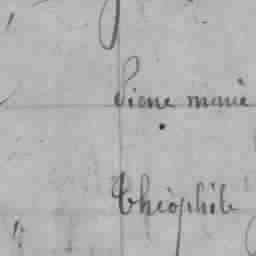 Pione marié
Théophile